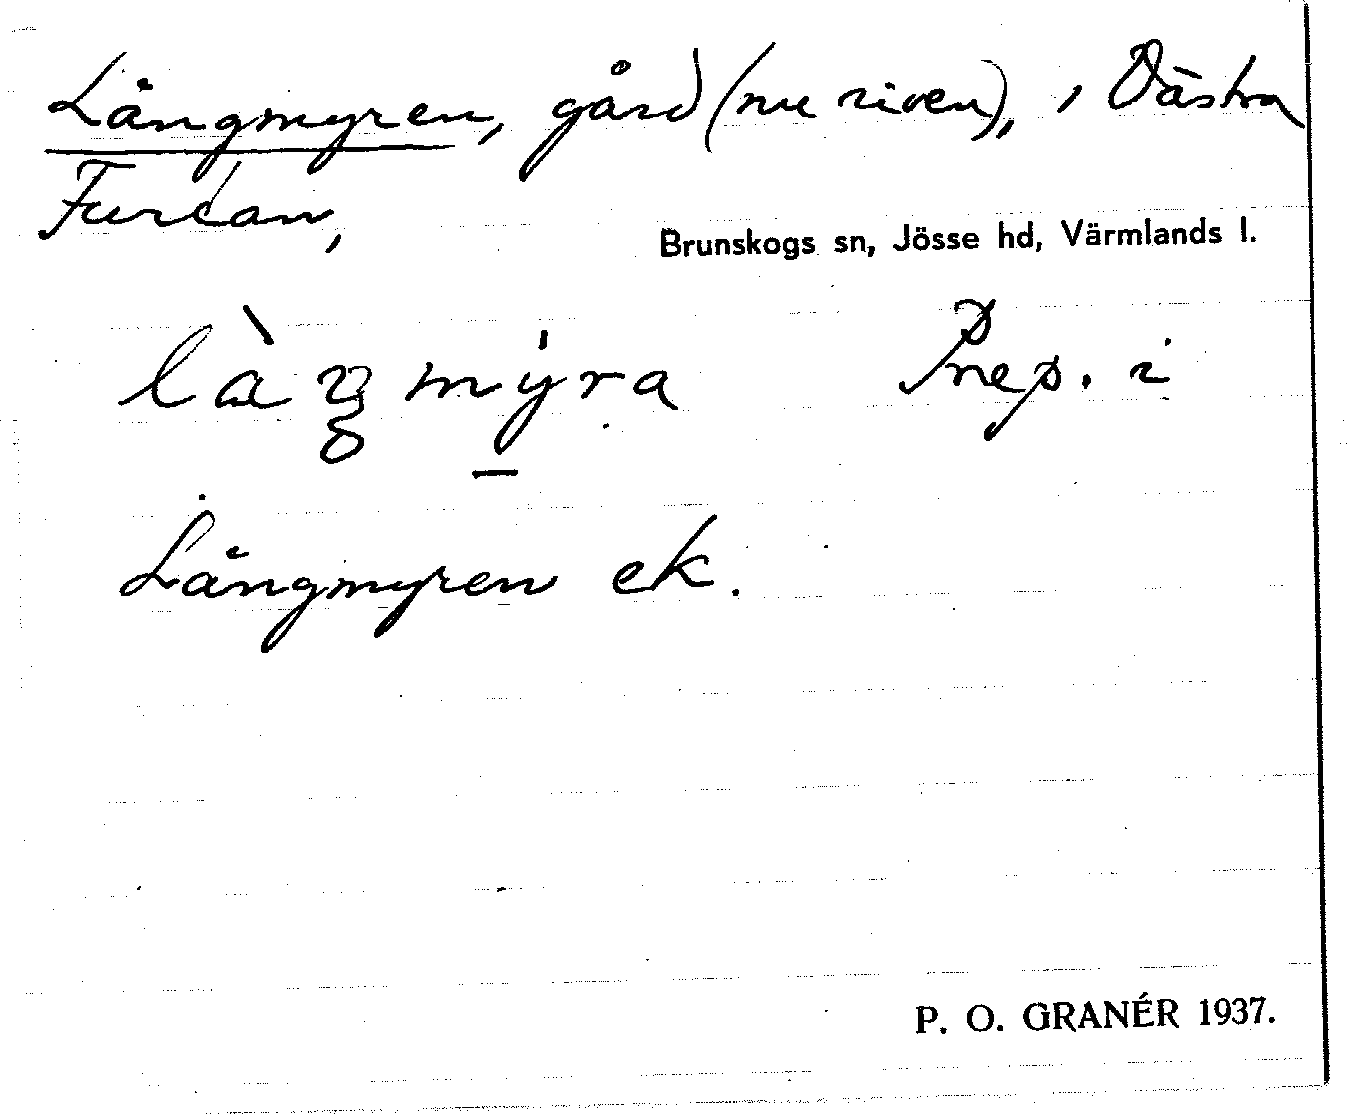 Långmyren, gård (nu riven), i Västra
Furtan,
Brunskogs sn, Jösse hd, Värmlands l.
Prep. i
Långmyren ek.
P. O. GRANÉR 1937.